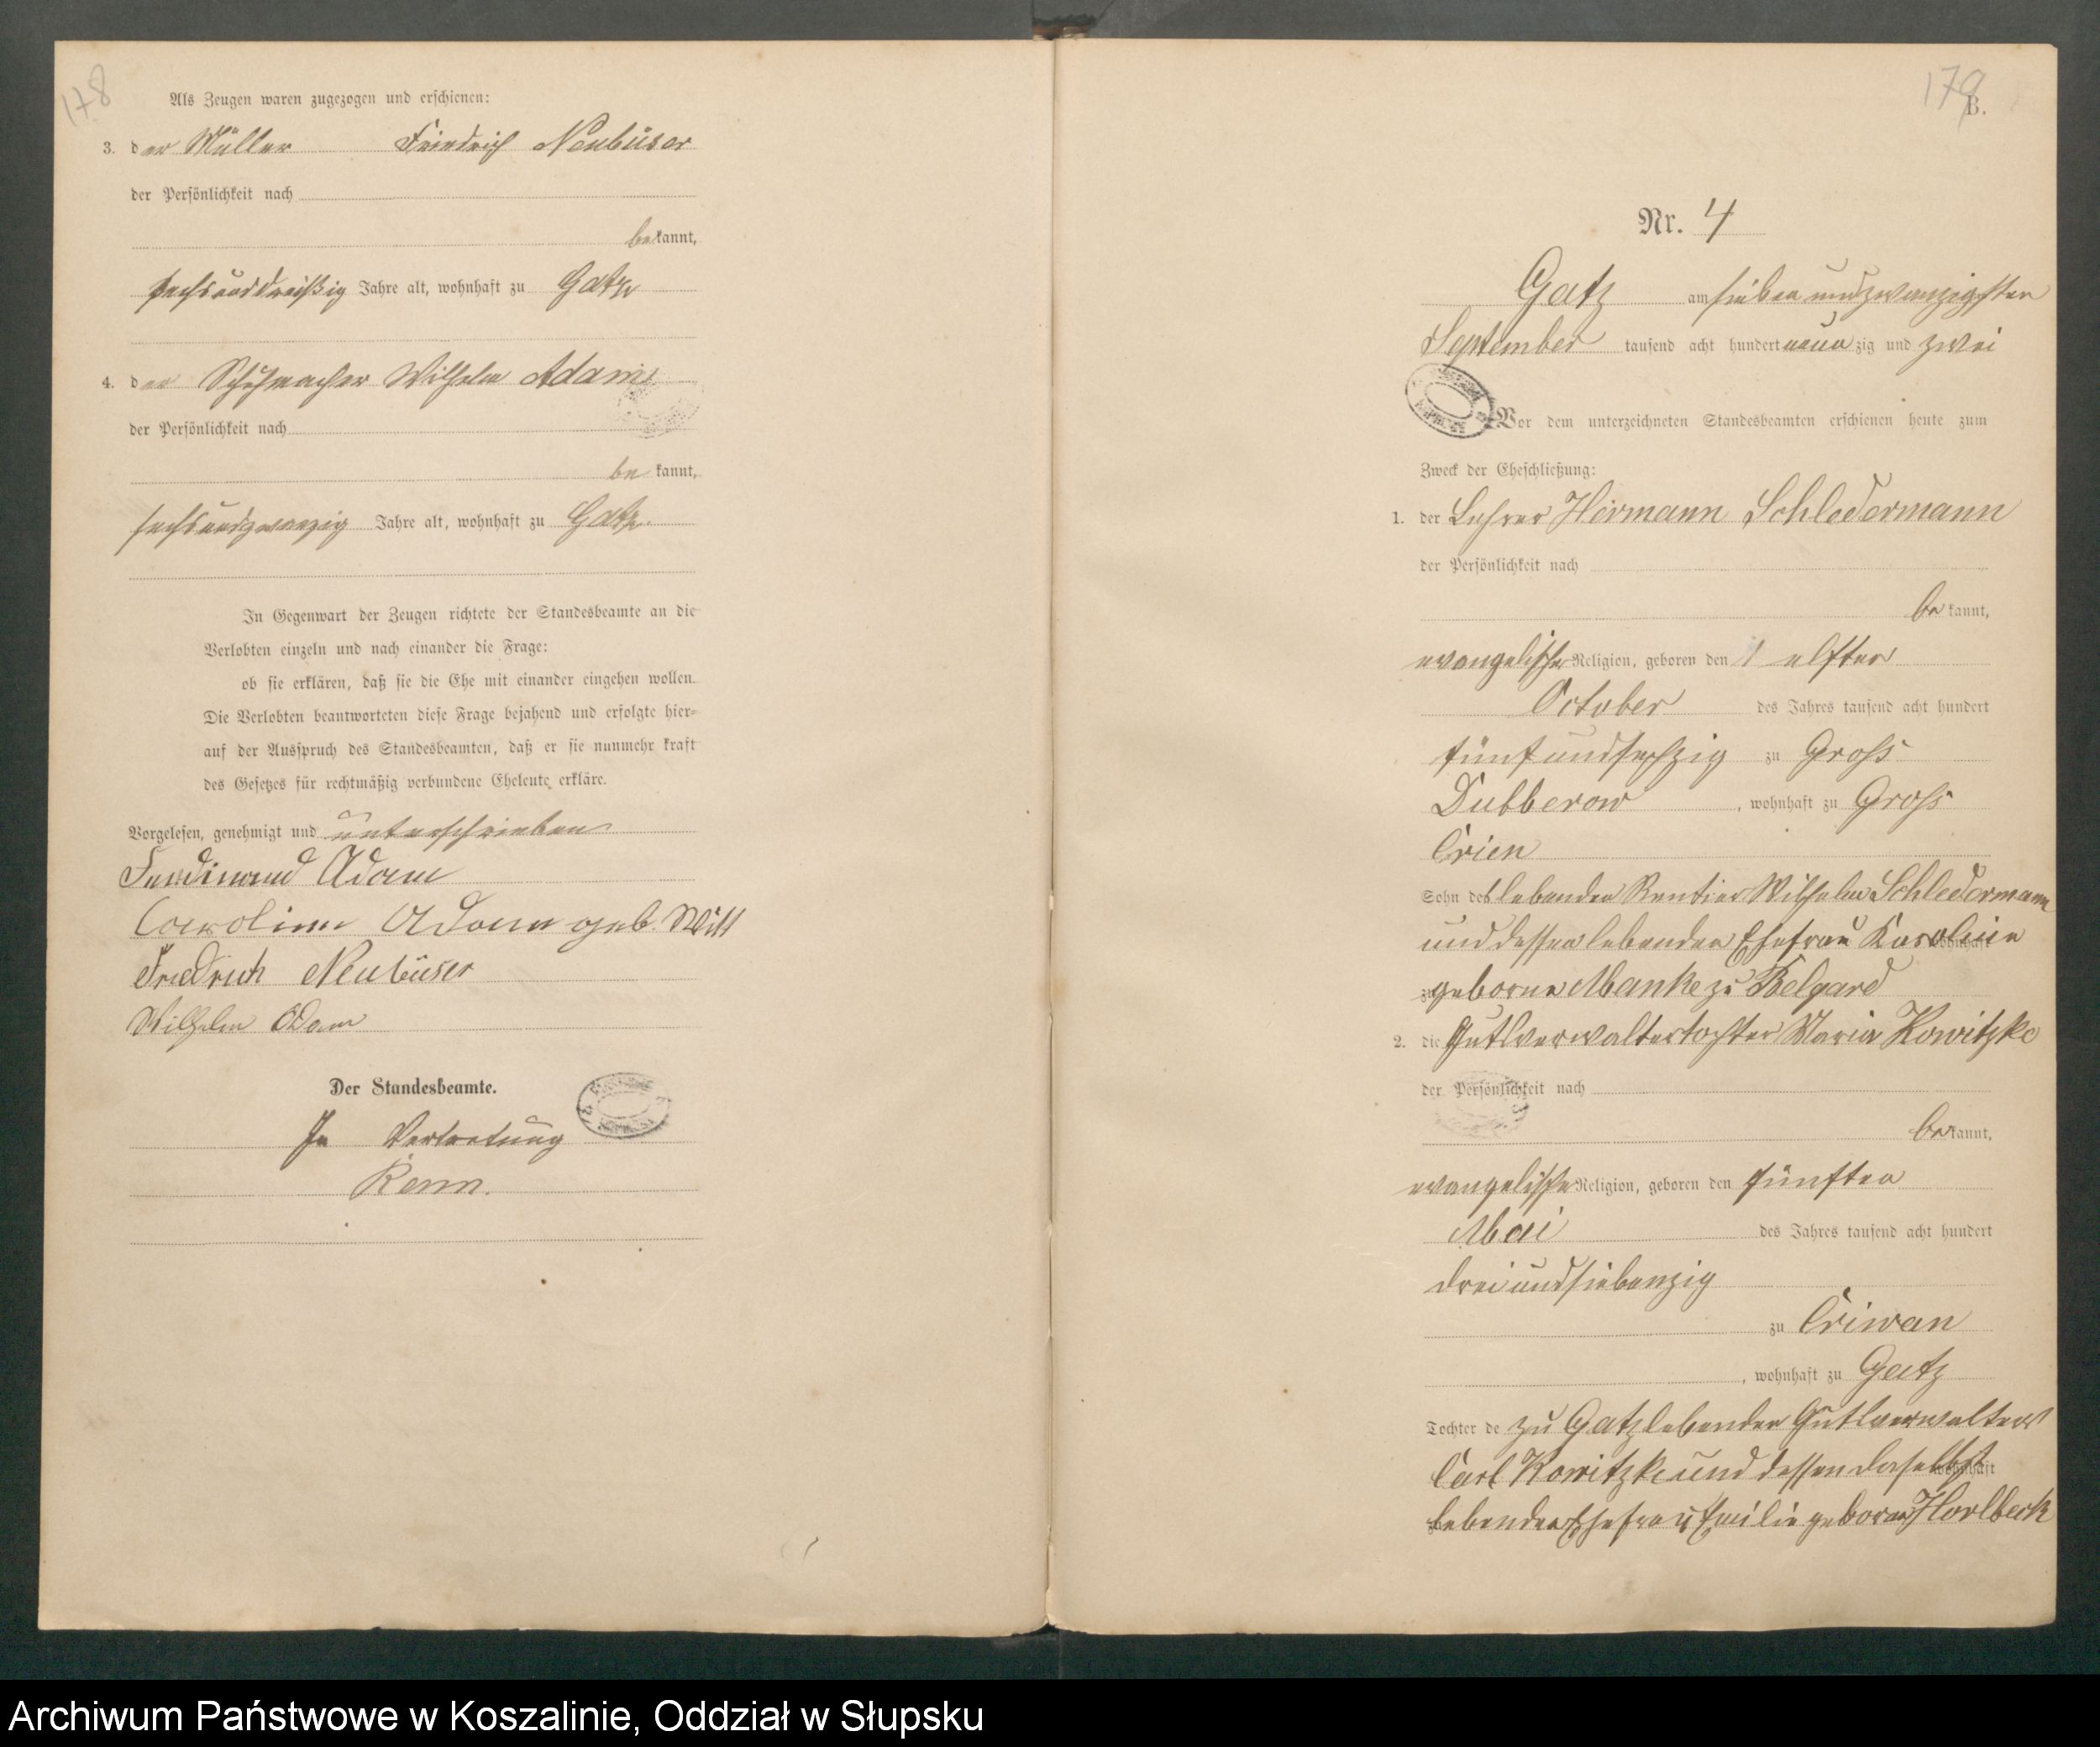 178
Als Zeugen waren zugezogen und erschienen:
3. der Müller Friedrich Neubüser
der Persönlichkeit nach
bekannt,
sechsunddreißig Jahre alt, wohnhaft zu Gatz
4. der Schuhmacher Wilhelm Adam
der Persönlichkeit nach
be kannt,
sechsundzwanzig Jahre alt, wohnhaft zu Gatz.
In Gegenwart der Zeugen richtete der Standesbeamte an die
Verlobten einzeln und nach einander die Frage:
ob sie erklären, daß sie die Ehe mit einander eingehen wollen.
Die Verlobten beantworteten diese Frage bejahend und erfolgte hier-
auf der Ausspruch des Standesbeamten, daß er sie nunmehr kraft
des Gesetzes für rechtmäßig verbundene Eheleute erkläre.
Vorgelesen, genehmigt und unterschrieben
Ferdinand Adam
Caroline Adam geb. Witt
Friedrich Neubüser
Wilhelm Adam
Der Standesbeamte.
In Vertretung
179
B.
Nr. 4
Gatz am siebenundzwanzigsten
September tausend acht hundert neunzig und zwei
Vor dem unterzeichneten Standesbeamten erschienen heute zum
Zweck der Eheschließung:
1. der Lehrer Hermann Schledermann
der Persönlichkeit nach
bekannt,
evangelischer Religion, geboren den elften
October des Jahres tausend acht hundert
fünfundsechzig zu Gross
Dubberow, wohnhaft zu Gross
Crien
Sohn des lebenden Rentier Wilhelm Schledermann
und dessen lebenden Ehefrau Karoline wohnhaft
geborne Manke zu Belgard
2. die Gutsverwaltertochter Maria Kowitzke
der Persönlichkeit nach
bekannt,
evangelische Religion, geboren den fünften
Mai des Jahres tausend acht hundert
dreiundsiebenzig
zu Criwan
, wohnhaft zu Gatz
Tochter de zu Gatz lebenden Gutsverwalters
Carl Kowitzke und dessen daselbst wohnhaft
lebenden Ehefrau Emilie geborne Horlbeck
Archiwum Państwowe w Koszalinie, Oddział w Słupsku